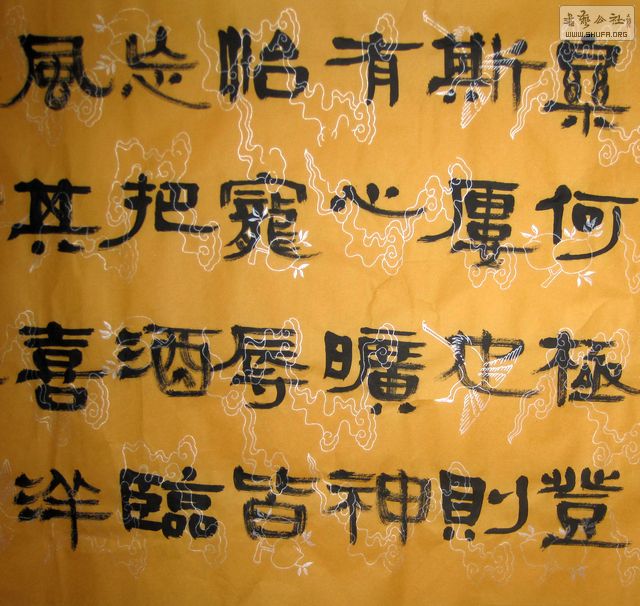 書藝公社
WWW.SHUFA.ORG
樂何極登
斯樓也則
有心曠神
怡寵辱皆
忘把酒臨
風其喜洋